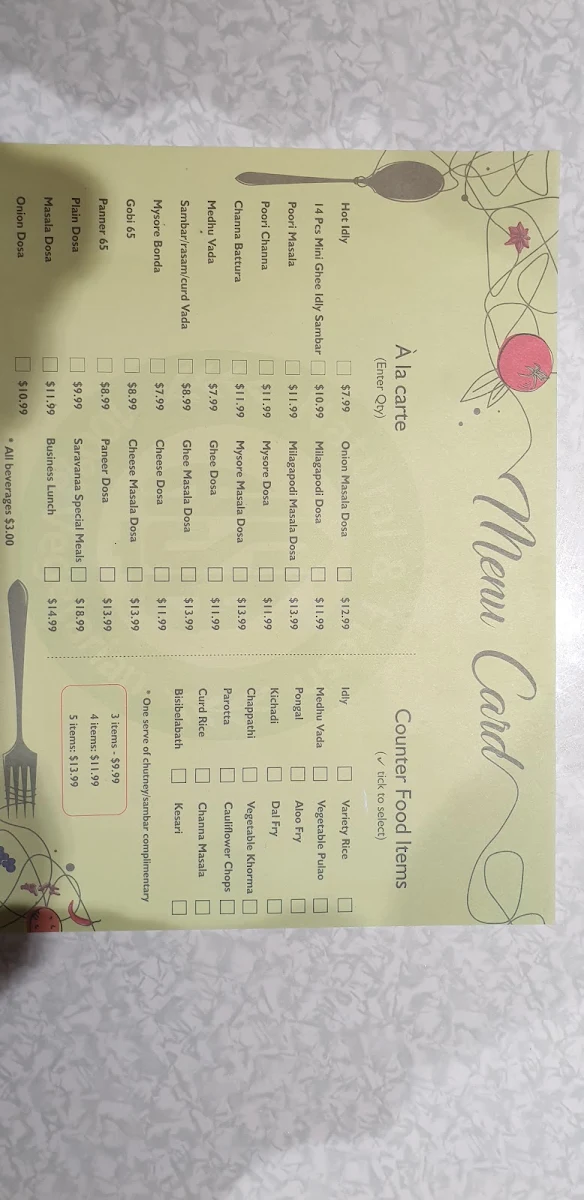 Menu Card
À la carte
(Enter Qty)
Hot Idly $7.99
14 Pcs Mini Ghee Idly Sambar $10.99
Poori Masala $11.99
Poori Channa $11.99
Channa Battura $11.99
Medhu Vada $7.99
Sambar/rasam/curd Vada $8.99
Mysore Bonda $7.99
Gobi 65 $8.99
Panner 65 $8.99
Plain Dosa $9.99
Masala Dosa $11.99
Onion Dosa $10.99
Onion Masala Dosa $12.99
Milagapodi Dosa $11.99
Milagapodi Masala Dosa $13.99
Mysore Dosa $11.99
Mysore Masala Dosa $13.99
Ghee Dosa $11.99
Ghee Masala Dosa $13.99
Cheese Dosa $11.99
Cheese Masala Dosa $13.99
Paneer Dosa $13.99
Saravanaa Special Meals $18.99
Business Lunch $14.99
* All beverages $3.00
Counter Food Items
(✓ tick to select)
Idly
Medhu Vada
Pongal
Kichadi
Chappathi
Parotta
Curd Rice
Bisibelabath
Variety Rice
Vegetable Pulao
Aloo Fry
Dal Fry
Vegetable Khorma
Cauliflower Chops
Channa Masala
Kesari
* One serve of chutney/sambar complimentary
3 items - $9.99
4 items: $11.99
5 items: $13.99